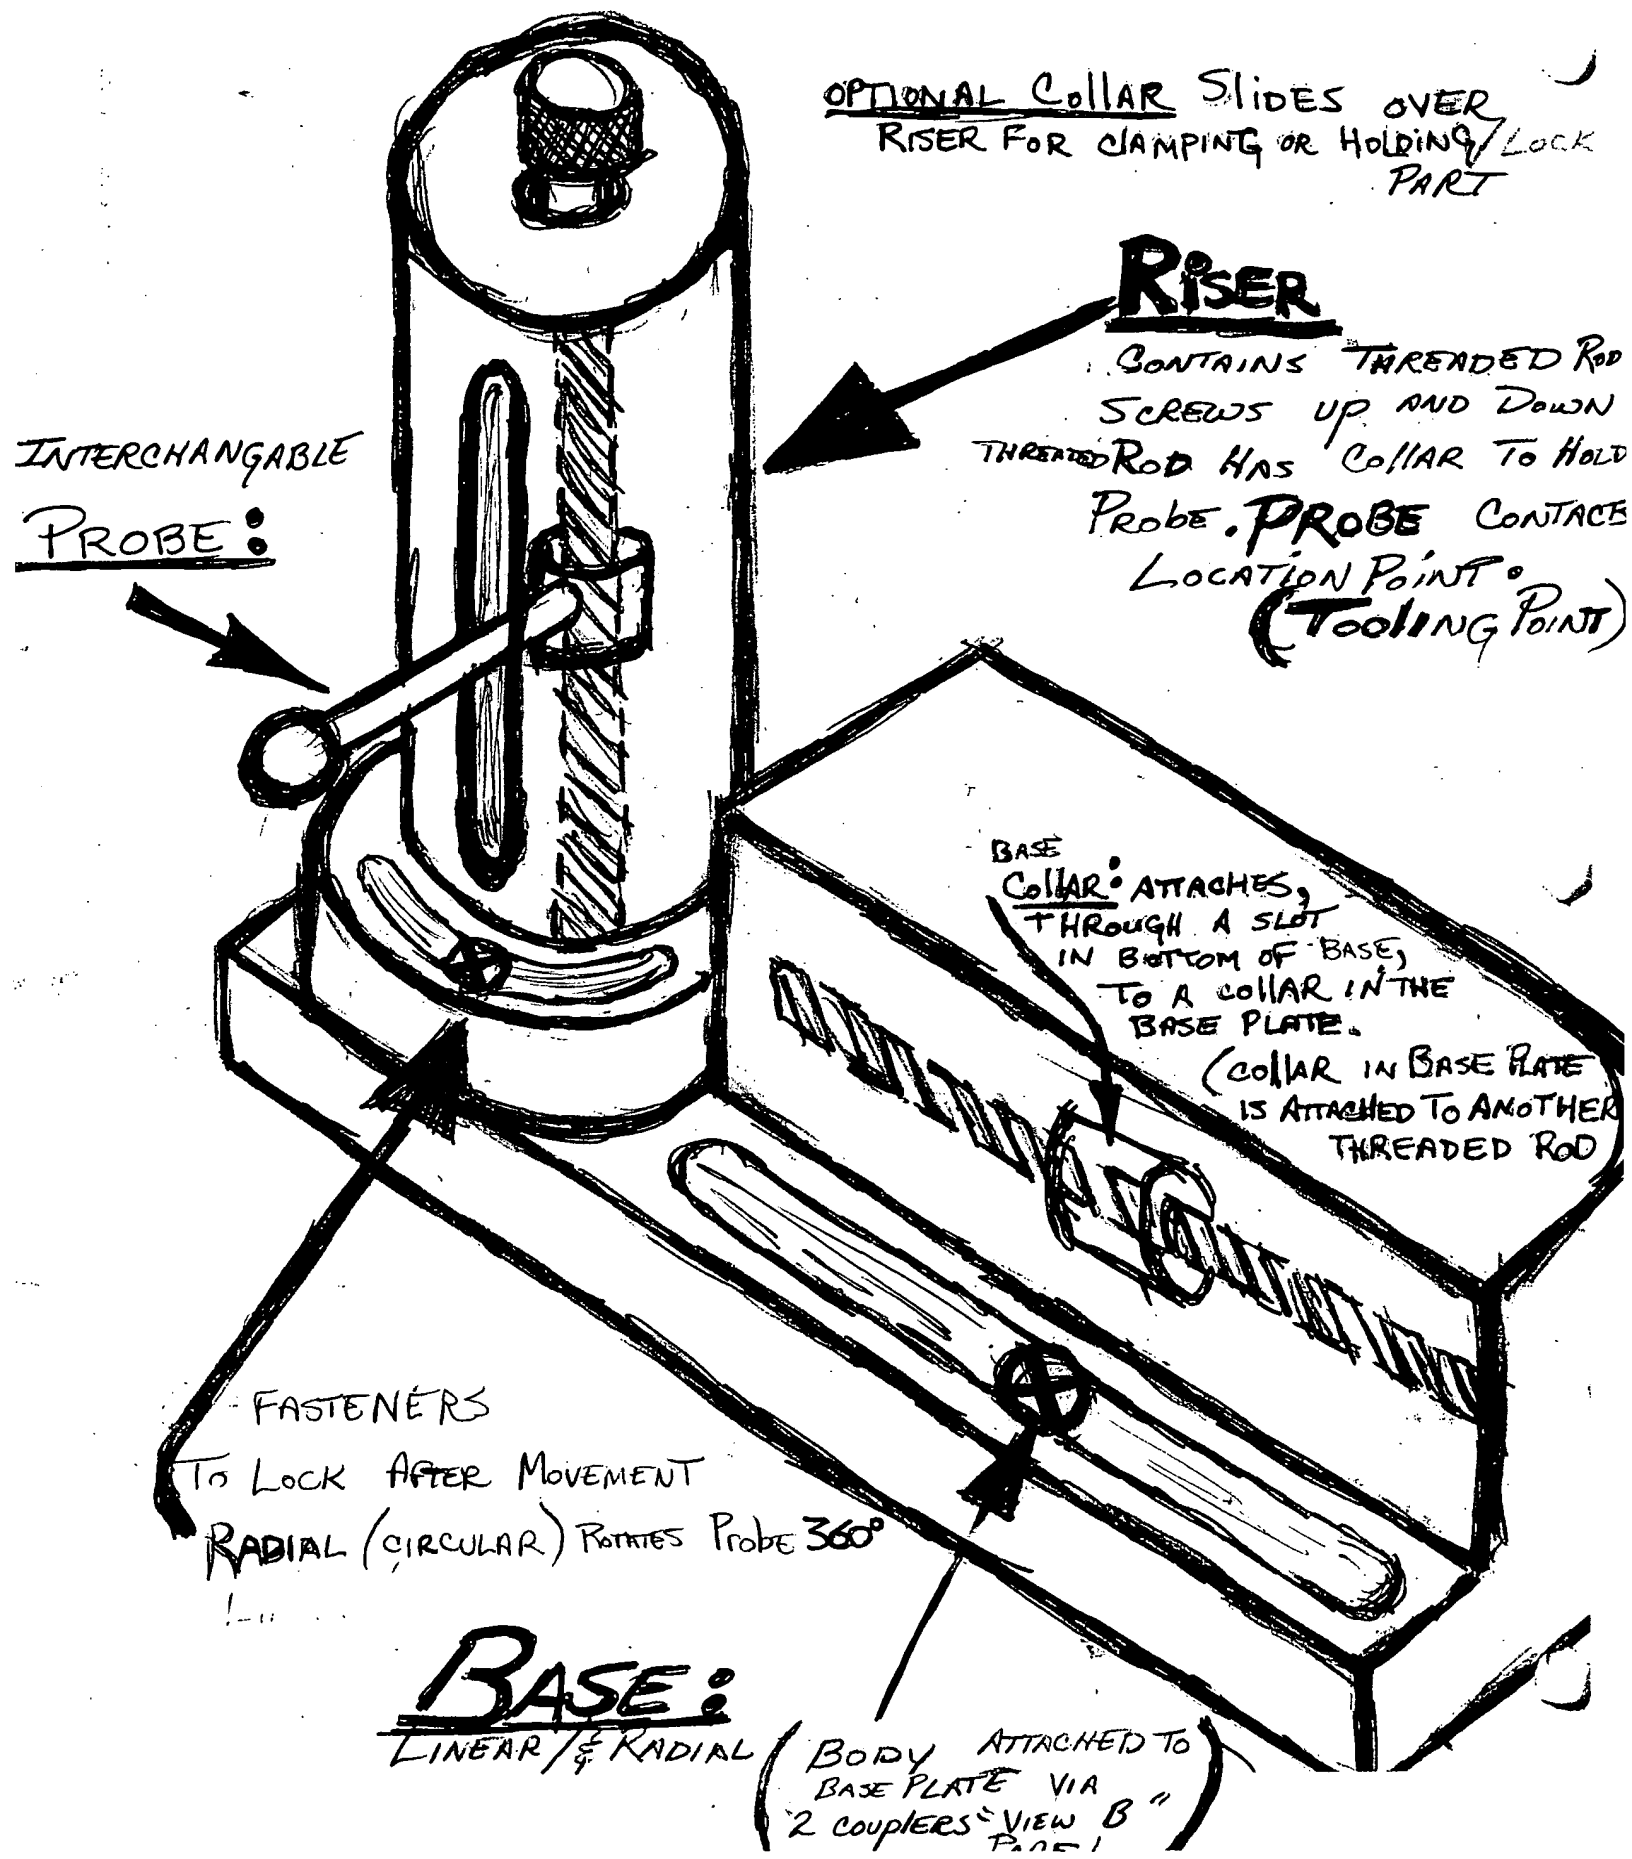 OPTIONAL COLLAR SLIDES OVER
RISER FOR CLAMPING OR HOLDING/LOCK
PART
RISER
CONTAINS THREADED ROD
SCREWS UP AND DOWN
THREADED ROD HAS COLLAR TO HOLD
PROBE. PROBE CONTACTS
LOCATION POINT.
(TOOLING POINT)
INTERCHANGABLE
PROBE:
BASE
COLLAR: ATTACHES,
THROUGH A SLOT
IN BOTTOM OF BASE,
TO A COLLAR IN THE
BASE PLATE.
(COLLAR IN BASE PLATE
IS ATTACHED TO ANOTHER
THREADED ROD
FASTENERS
TO LOCK AFTER MOVEMENT
RADIAL (CIRCULAR) ROTATES PROBE 360°
BASE:
LINEAR/& RADIAL
(BODY ATTACHED TO
BASE PLATE VIA
2 COUPLERS "VIEW B"